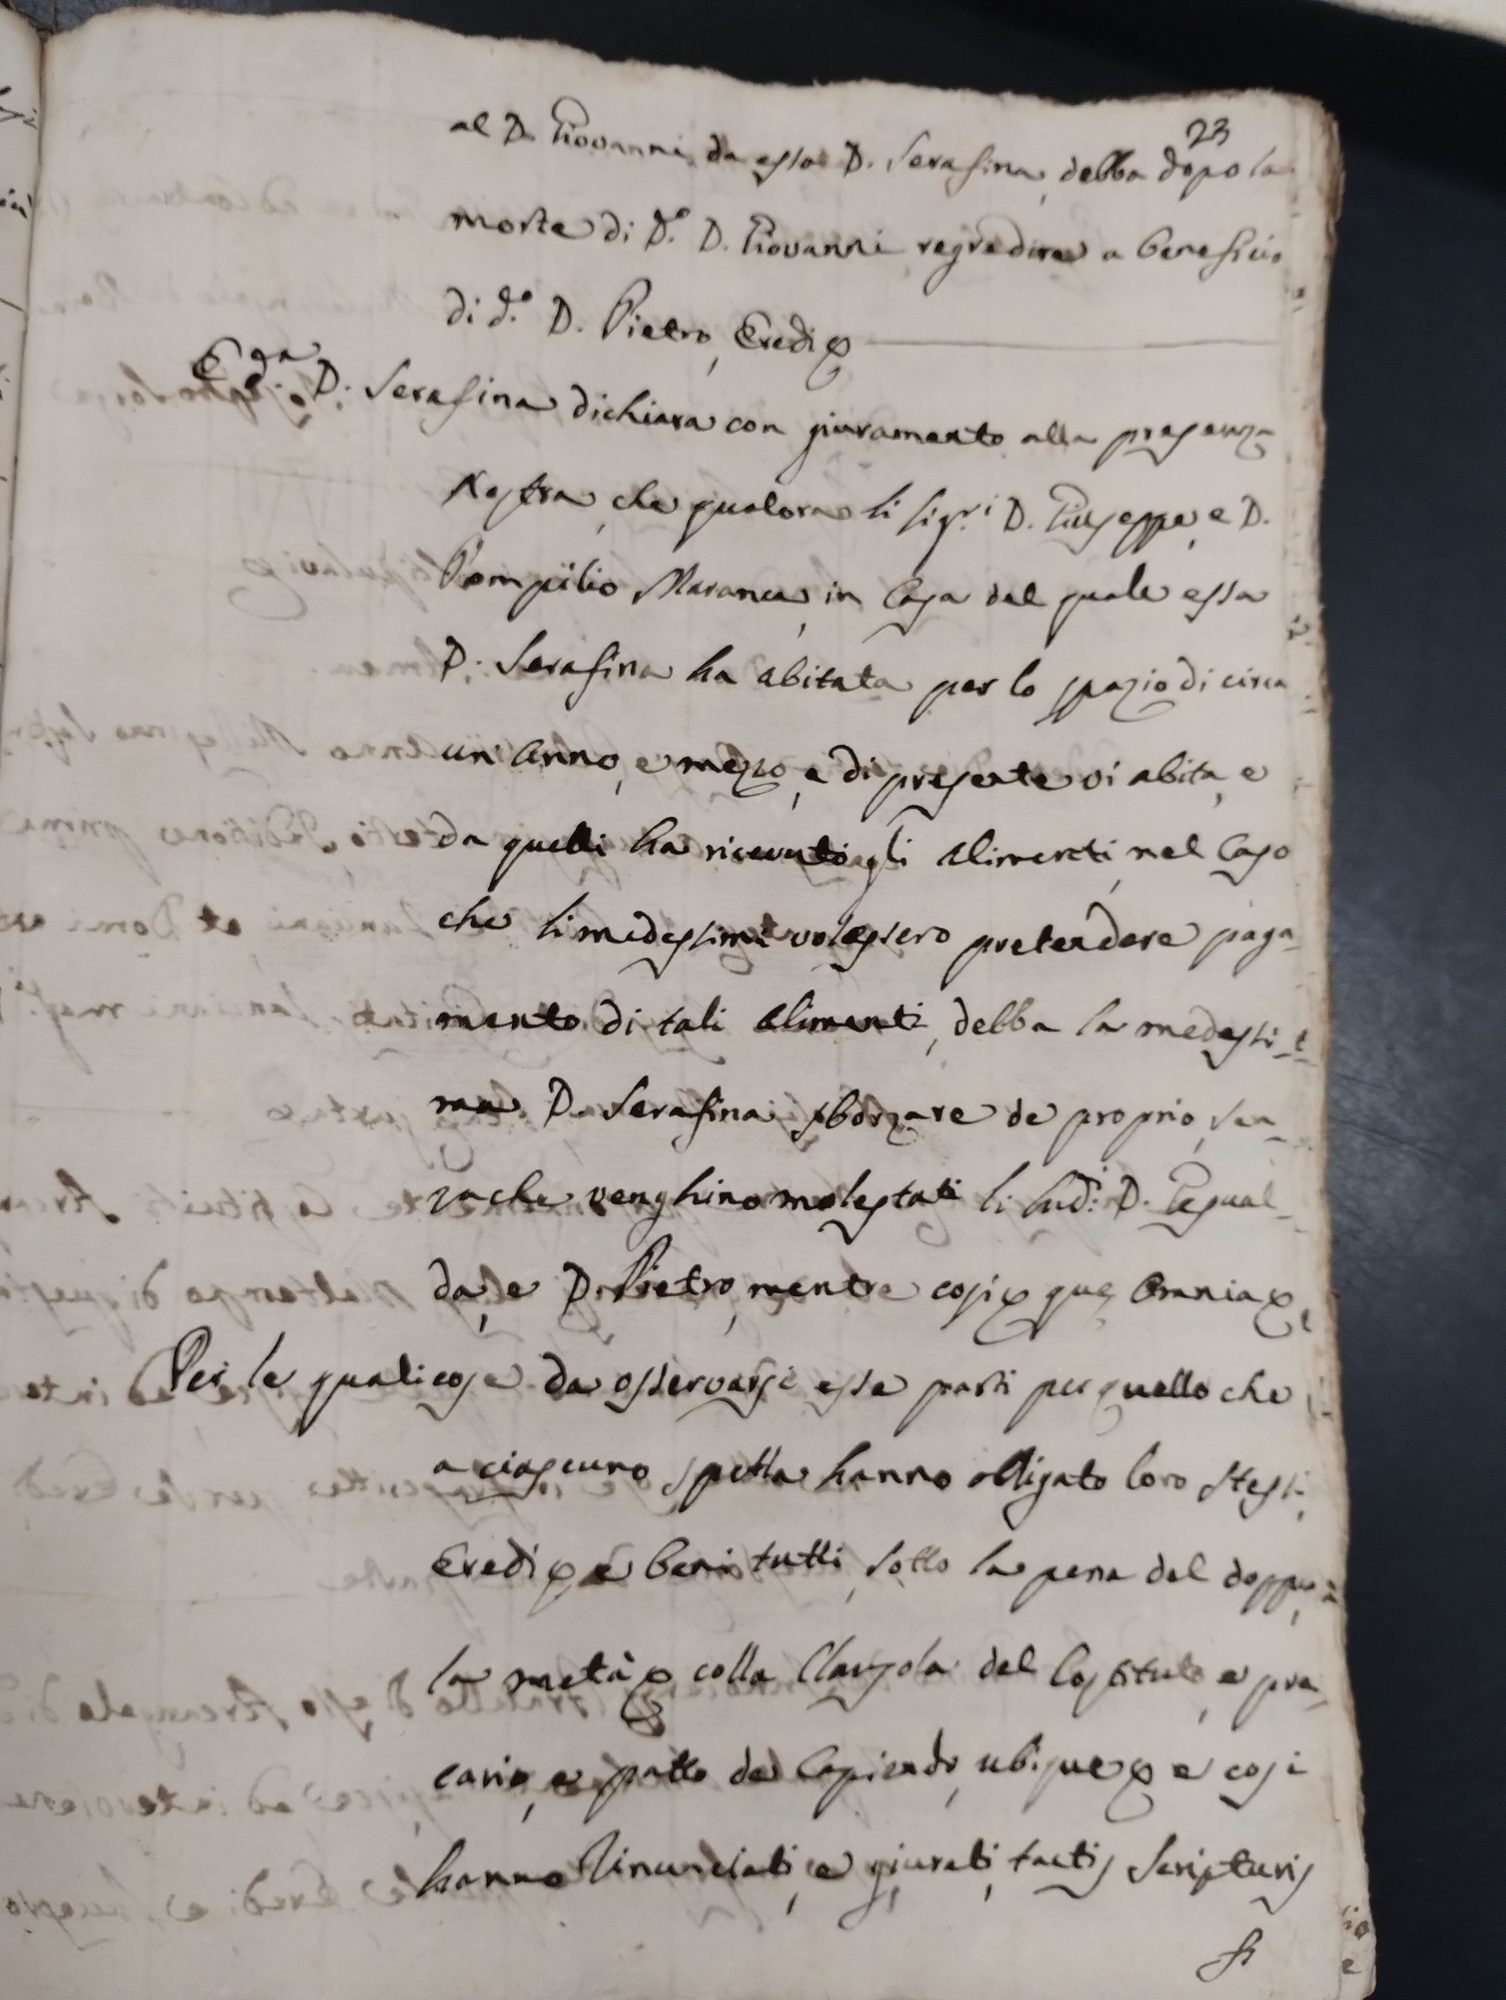 23
al D. Giovanni da essa D. Serafina, debba dopo la
morte di d.º D. Giovanni regredire a beneficio
di d.º D. Pietro, Eredi &
E d.ª D. Serafina dichiara con giuramento alla presenza
Nostra, che qualora li Sig.ri D. Giuseppe, e D.
Pompilio Maranca, in Casa del quale essa
D. Serafina ha abitata per lo spazio di circa
un Anno, e mezzo, e di presente vi abita, e
da quelli ha ricevuto gli alimenti, nel Caso
che li medesimi volessero pretendere paga-
mento di tali alimenti, debba la medesi-
ma D. Serafina sborzare de proprio, sen-
za che venghino molestati li sud.i D. Gesual-
da, e D. Pietro, mentre così & que Omnia &
Per le quali cose da osservarsi esse parti per quello che
a ciascuno spetta hanno obligato loro stessi,
Eredi & e beni tutti, sotto la pena del doppio,
la metà & colla Clausola del Costituto, e pre-
cario, e patto de Capiendo, ubique & e così
hanno rinunciati, e giurati, tactis Scripturis